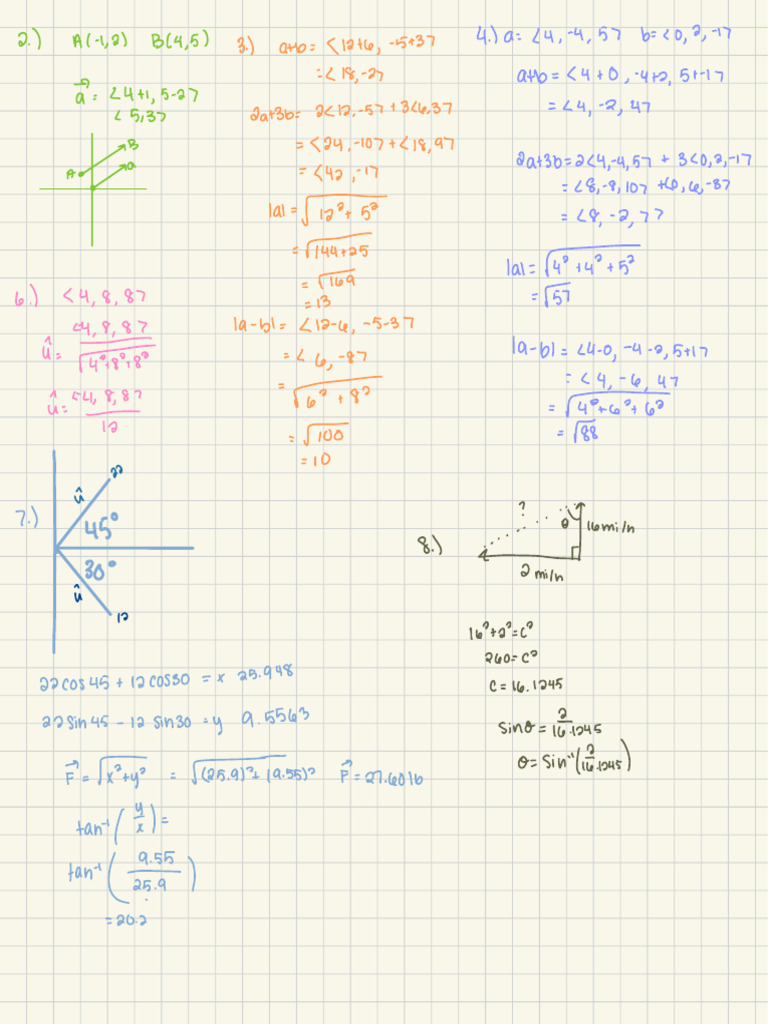 2.) A(-1,2) B(4,5)
a⃗ = <4+1, 5-2>
<5,3>
B
A
a
3.) a+b = <12+6, -5+3>
= <18,-2>
2a+3b = 2<12,-5> + 3<6,3>
= <24,-10> + <18,9>
= <42,-1>
|a| = √12² + 5²
= √144+25
= √169
= 13
|a-b| = <12-6, -5-3>
= <6,-8>
= √6² + 8²
= √100
= 10
4.) a = <4, -4, 5> b = <0, 2, -1>
a+b = <4+0, -4+2, 5+-1>
= <4, -2, 4>
2a+3b = 2<4,-4,5> + 3<0,2,-1>
= <8,-8,10> + <0,6,-3>
= <8, -2, 7>
|a| = √4² + 4² + 5²
= √57
|a-b| = <4-0, -4-2, 5+1>
= <4, -6, 4>
= √4² + 6² + 6²
= √88
6.) <4, 8, 8>
û = <4, 8, 8> / √4²+8²+8²
û = <4, 8, 8> / 12
7.)
22
û
45°
30°
û
12
22cos45 + 12cos30 = x 25.948
22sin45 - 12sin30 = y 9.5563
F⃗ = √x²+y² = √(25.9)²+(9.55)² F⃗ = 27.60lb
tan⁻¹(y/x) =
tan⁻¹(9.55/25.9)
= 20.2
8.)
?
θ
16mi/h
2 mi/h
16²+2²=c²
260=c²
c=16.1245
sinθ = 2/16.1245
θ = sin⁻¹(2/16.1245)